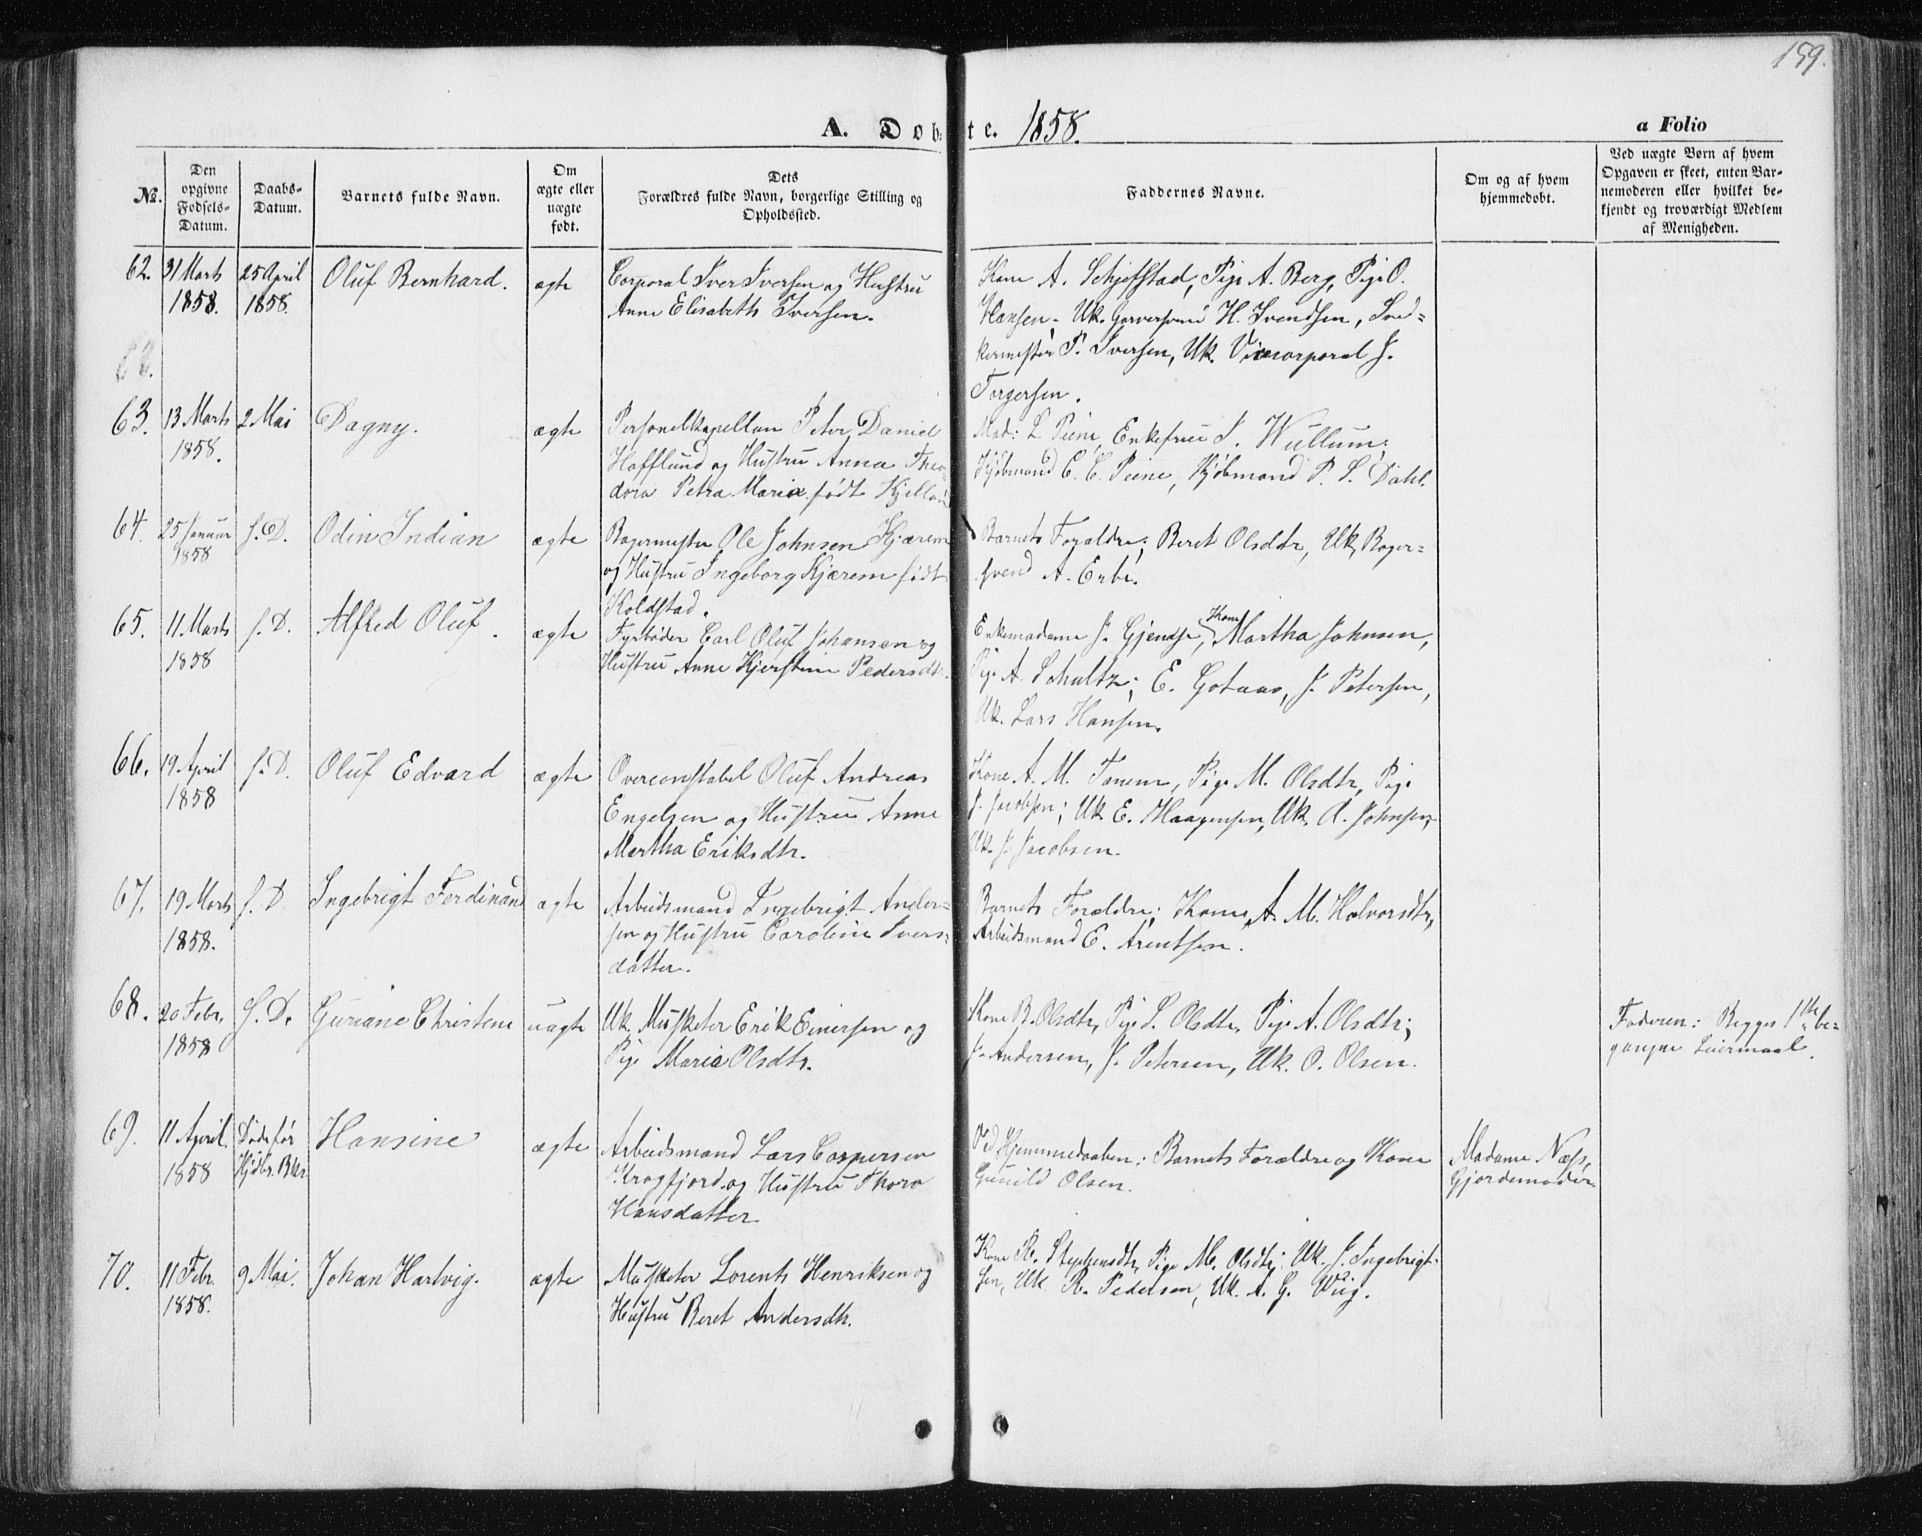 159.
A. Døbte. 1858.
a Folio
No.
Den opgivne Fødsels-Datum.
Daabs-Datum.
Barnets fulde Navn.
Om ægte eller uægte født.
Dets Forældres fulde Navn, borgerlige Stilling og Opholdssted.
Faddernes Navne.
Om og af hvem hjemmedøbt.
Ved uægte Børn af hvem Opgaven er skeet, enten Barnemoderen eller hvilket bekjendt og troværdigt Medlem af Menigheden.
62. 31 Marts 1858. 25 April 1858. Oluf Bernhard. ægte
Corporal Iver Iversen og Hustru
Anne Elisabeth Iversen.
Kone A. Schjefstad, Pige A. Berg, Pige O.
Hansen. Uk. Garversvend H. Svendsen, Snedkermester P. Iversen, Uk. Vicecorporal J.
Torgersen.
63. 13 Marts 1858. 2 Mai Dagny. ægte
Personelkapellan Peter Daniel
Hofflund og Hustru Anna Theodora Petra Maria født
Mad: L Piene, Enkefrue S. Wullum;
Kjøbmand C. C. Piene, Kjøbmand P. S. Dahl.
64. 25 Januar 1858 S. D. Odin Indian ægte
Bagermester Ole Johnsen Kjærem
og Hustru Ingeborg Kjærem født
Koldstad.
Barnets Forældre; Beret Olsdtr, Uk. Bagersvend A. Erbe.
65. 11 Marts 1858 S. D. Alfred Oluf. ægte
Fyrbøder Carl Oluf Johansen og
Hustru Anne Kjerstine Pedersdtr.
Enkemadame J. Gjendse, Kone Martha Johnsen,
Pige A Schultz; E. Gotaas, J. Petersen,
Uk. Lars Hansen.
66. 19 April 1858 S. D. Oluf Edvard ægte
Overconstabel Oluf Andreas
Engelsen og Hustru Anne
Martha Eriksdtr.
Kone A. M. Tanem, Pige M. Olsdtr, Pige
J. Jacobsen; Uk. E. Haagensen, Uk. A. Johnsen,
Uk. J. Jacobsen.
67. 19 Marts 1858. S. D. Ingebrigt Ferdinand ægte
Arbeidsmand Ingebrigt Andersen og Hustru Caroline Iversdatter.
Barnets Forældre; Kone A. M. Halvorsdtr,
Arbeidsmand E. Arentsen.
68. 20 Febr. 1858 S. D. Guriane Christine uægte
Uk. Musketer Erik Einersen og
Pige Maria Olsdtr.
Kone B. Olsdtr, Pige S. Olsdtr, Pige A. Olsdtr;
J. Andersen, J. Petersen, Uk. O. Olsen.
Faderen: Begges 1ste begangne Leiermaal.
69. 11 April. 1858 Døde før Hansine ægte
Arbeidsmand Lars Caspersen
Kragfjord og Hustru Thora
Hansdatter
Ved Hjemmedaaben: Barnets Forældre og Kone
Gunild Olsen.
Madame Næss,
Gjordemoder.
70. 11 Febr. 1858. 9 Mai. Johan Hartvig. ægte
Musketer Lorents Henriksen og
Hustru Beret Andersdtr.
Kone R. Stephensdtr, Pige M. Olsdtr; Uk. J. Ingebrigtsen, Uk. R. Pedersen, Uk. A. G. Wiig.